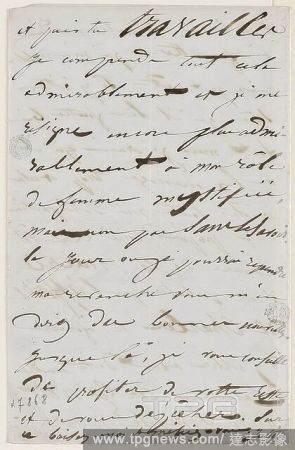 et puis tu travailles
je comprends tout cela
admirablement et je me
résigne encore plus admi
rablement à mon rôle
de femme mystifiée,
mais non pas sans
le jour où je pourrai
ma revanche vous m'en
de bonnes
jusque là, je vous conseille
de profiter de votre reste
et de vous dépêcher. Sur
17868
TPG
www.tpgnews.com / 達志影像